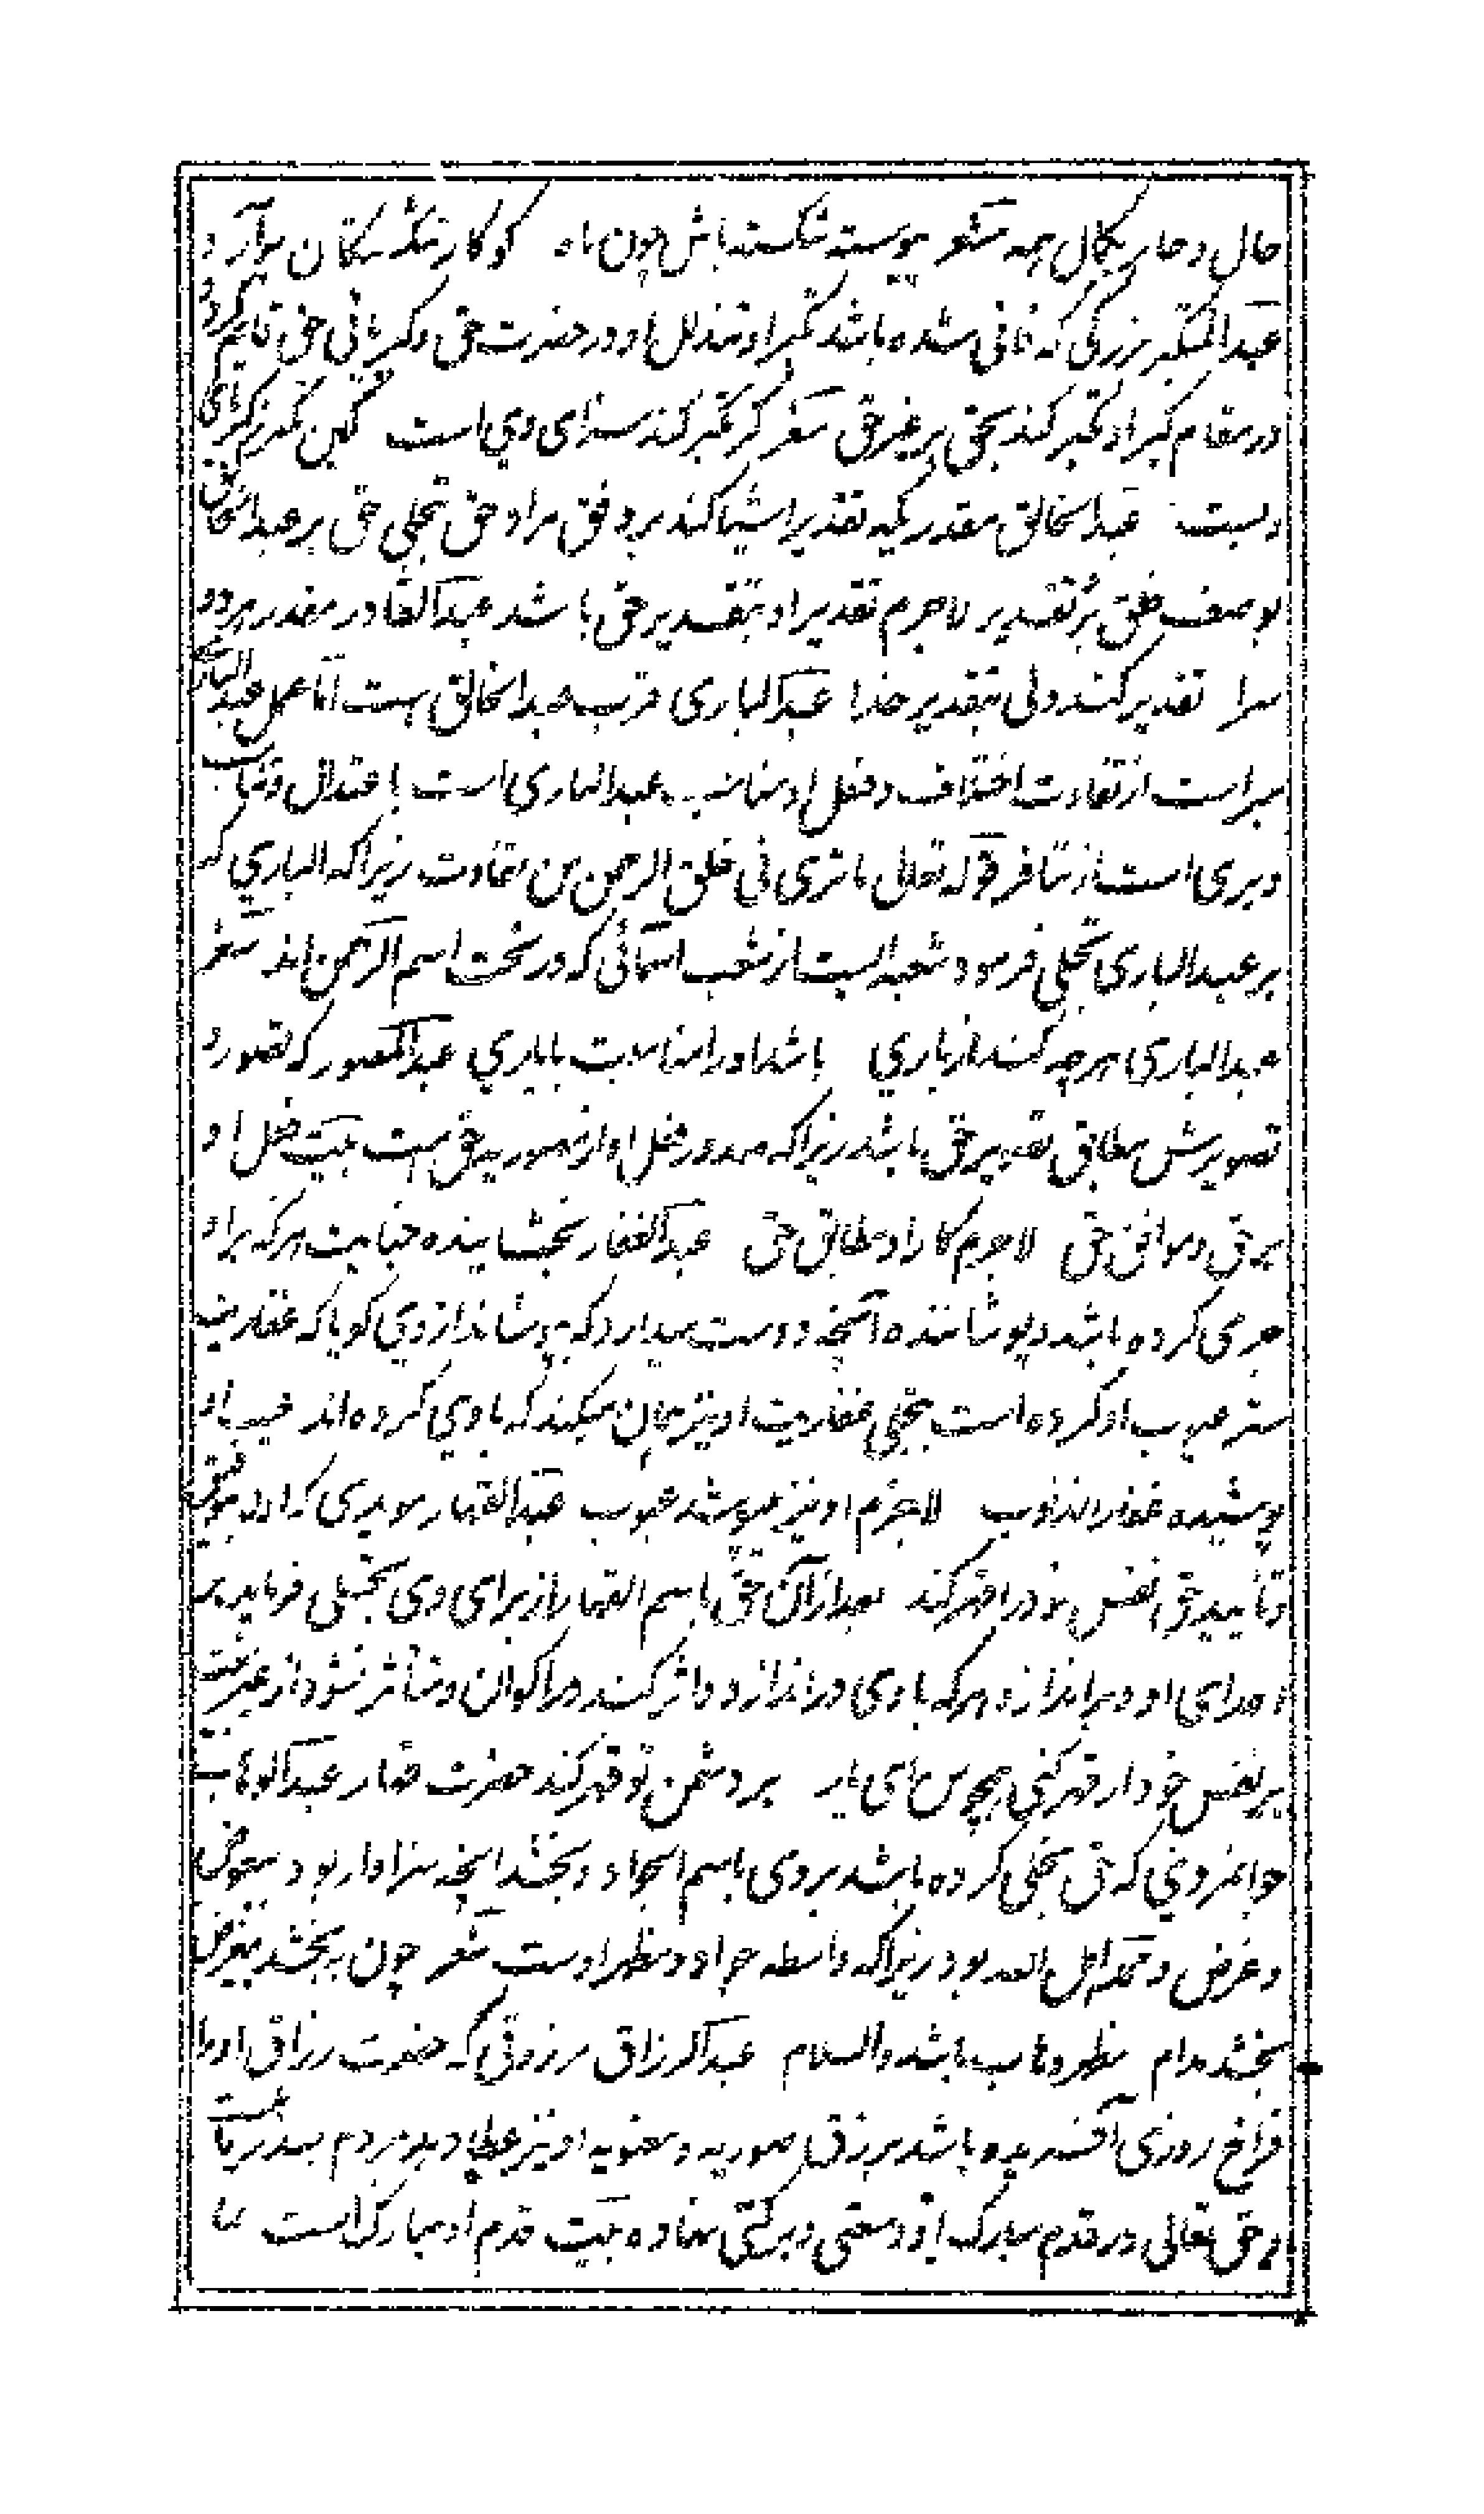 حال و جابر بکمال همه شعر پیوسته شکسته باش چون ماه کو کار شکستگان برآرد
عبد المتکبر بزرگی که فانی شده باشد تکبر او بتذلل او در حضرت حق و کبریائی حق قایم گردد
در مقام کبر او تکبر کند بحق بر غیر حق شعر گر تکبر کند سزای وی است کبریائی
ویست عبد الخالق مقدریکه تقدیر اشیا کند بر وفق مراد حق تجلی حق بر عبد الخالق
بوصف خلق و تقدیر لاجرم تقدیر او بتقدیر حق باشد عبد القادر مقدر هر دو
سرا تقدیر کند ولی بتقدیر خدا عبد الباری قریب عبد الخالق است اما عمل عبد الباری
مبراست از تفاوت اختلاف و فعل او مناسب عبد الباری است باعتدال و تناسب
و بری است از تنافر قوله تعالی ما تری فی خلق الرحمن من تفاوت زیرا که الباری که
بر عبد الباری تجلی فرمود شعبه ایست از شعب اسمائی که در تحت اسم الرحمن اند شعر
عبد الباری هر چه کند از باری باشد او را مناسبت با باری عبد المصور که تصور و
تصویرش مطابق تصویر حق باشد زیرا که صدور فعل او از مصوریه حق است بیت فعل او
بر حق و موافق حق لاجرم کار او مطابق حق عبد الغفار بخشاینده جنایت هر که بر او
جرمی کرده باشد و پوشاننده آنچه دوست میدارد که پوشاند از وی گویا که غفاریت
ستر عیوب او کرده است بتجلی غفاریت او نیز همان میکند که با وی کرده اند عیب او
پوشیده غفار الذنوب لاجرم او نیز میپوشد عیوب عبد القهار مویدی که او بتوفیق
و تأیید حق نفس خود را قهر کند بعد از آن حق باسم القهار از برای وی تجلی فرماید بر
اعدای او و براندازد هر که با وی دراندازد و اثر کند در اکوان و متأثر نشود از غیر
بر نفس خود ار قهر کنی همچو من ای یار بر دشمن تو قهر کند حضرت قهار عبد الوهاب
جوانمردی که حق تجلی کرده باشد بر وی باسم الجواد و بخشد آنچه سزاوار بود بیعوض
و غرض و ممد اهل الله بود زیرا که واسطه جواد و مظهر اوست شعر چون ببخشد بیغرض
بخشد مدام مظهر وهاب باشد والسلام عبد الرزاق مرزوقی که حضرت رزاق او را
فراخ روزی آفریده باشد برزق صوریه و معنویه او نیز عطایا دهد بمردم بقدر
و حق تعالی در قدم مبارک او وسعتی و برکتی نهاده بیت قدم او مبارک است